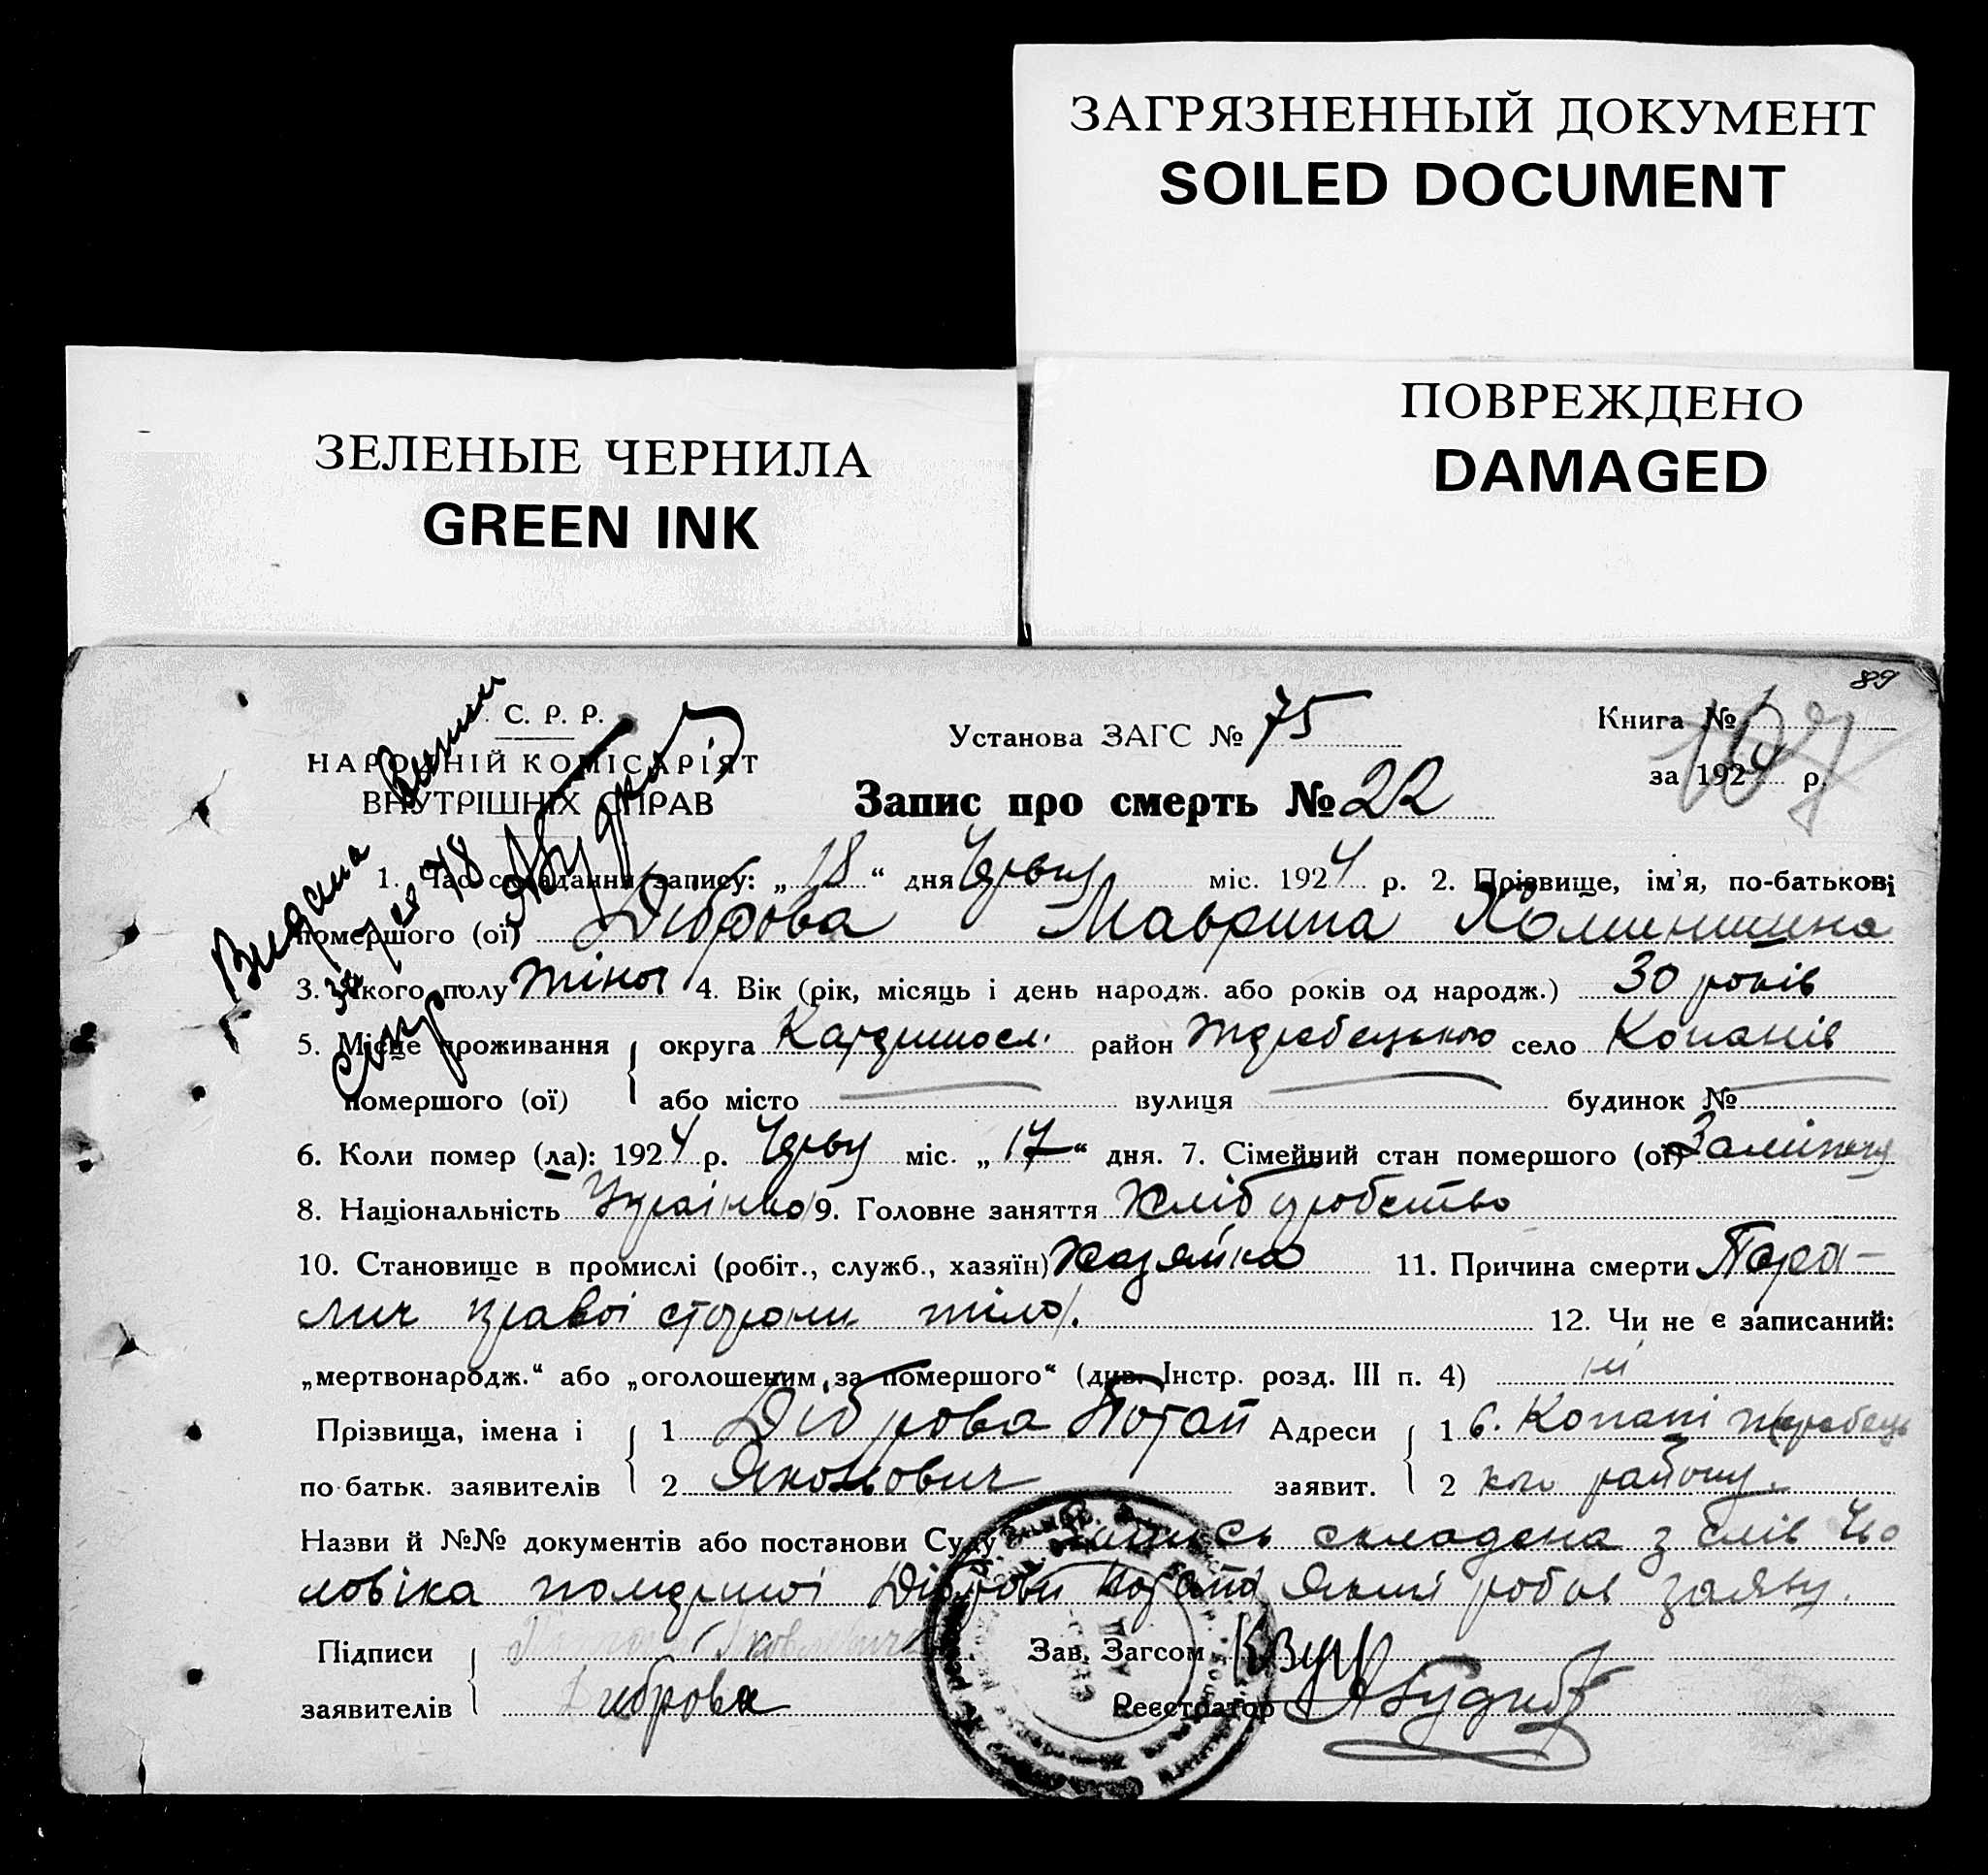 ЗАГРЯЗНЕННЫЙ ДОКУМЕНТ
SOILED DOCUMENT
ПОВРЕЖДЕНО
DAMAGED
ЗЕЛЕНЫЕ ЧЕРНИЛА
GREEN INK
89
С. Р. Р.
НАРОДНІЙ КОМІСАРІЯТ
ВНУТРІШНІХ СПРАВ
Видана
за № 48
Установа ЗАГС № 75
Книга №
за 1924 р.
Запис про смерть № 22
1. Час складання запису: „18“ дня Червц міс. 1924 р. 2. Прізвище, ім'я, по-батькові
помершого (ої) Діброва Маврина
3. Якого полу жіноч 4. Вік (рік, місяць і день народж. або років од народж.) 30 років
5. Місце проживання округа район Жеребецького село Копанів
помершого (ої) або місто вулиця будинок №
6. Коли помер (ла): 1924 р. Червц міс. „17“ дня. 7. Сімейний стан помершого (ої) Заміжня
8. Національність Українка 9. Головне заняття Хліборобство
10. Становище в промислі (робіт., служб., хазяїн) хазяйка 11. Причина смерти Пара-
лич правої сторони тіла. 12. Чи не є записаний:
„мертвонародж.“ або „оголошеним за помершого“ (див. Інстр. розд. III п. 4) ні
Прізвища, імена і 1 Діброва Потап Адреси 1 с. Копані Жеребець
по батьк. заявителів 2 Якольович заявит. 2 кого району.
Назви й №№ документів або постанови Суду Запись складена з слів Чо
ловіка помершої Діброви Потапа Який робив заяву.
Підписи Яковлевича Зав. Загсом
заявителів Диброва Реєстратор